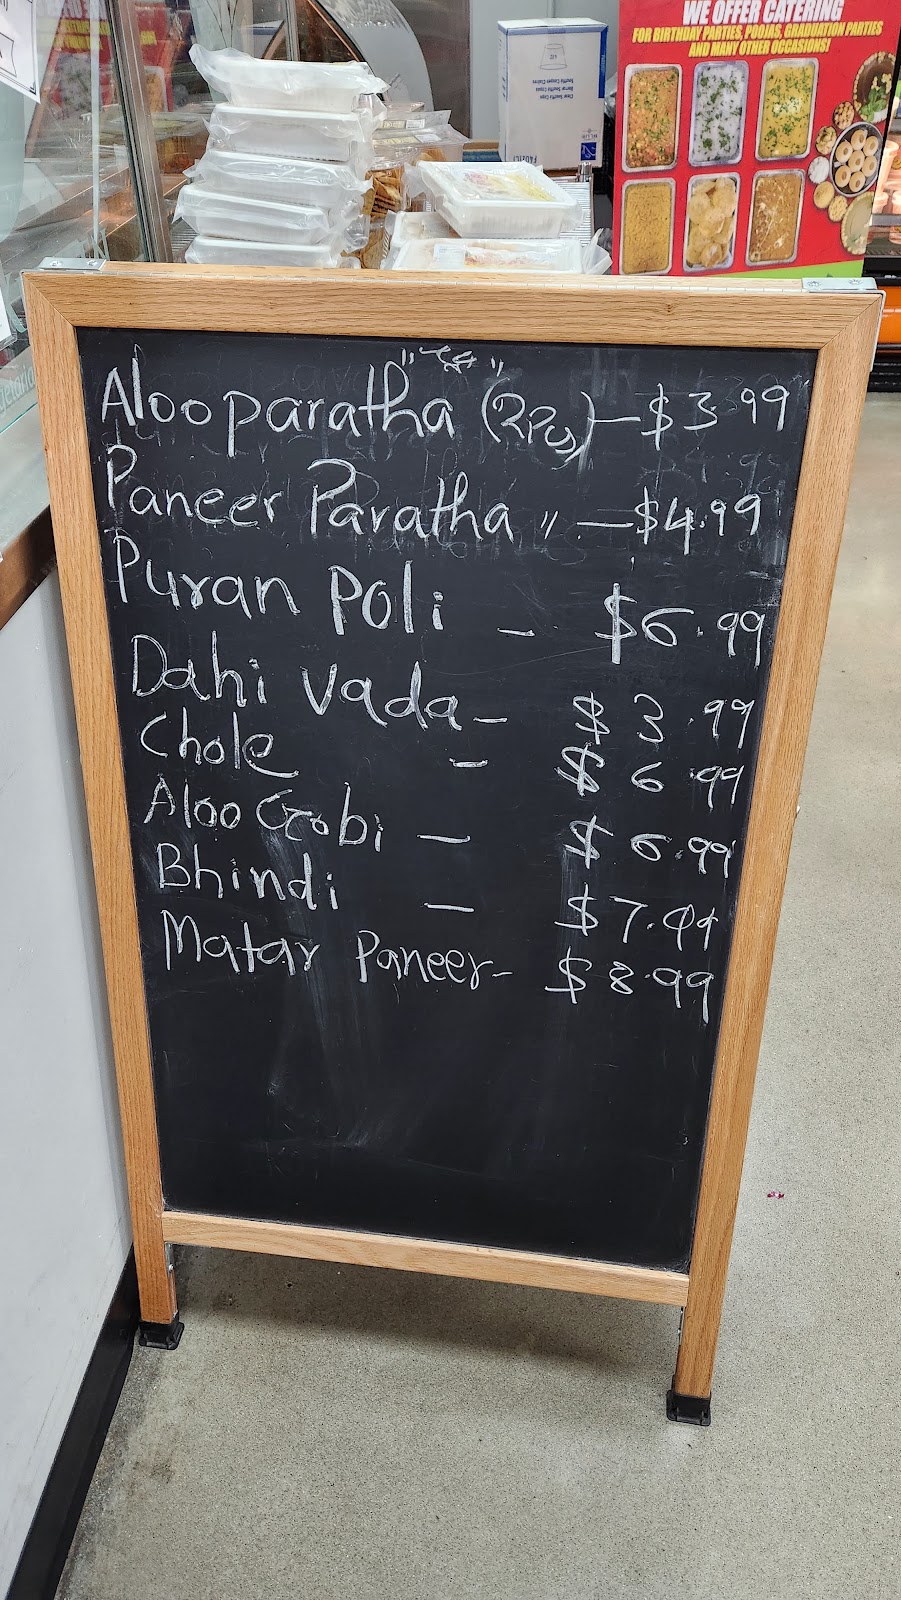 WE OFFER CATERING
FOR BIRTHDAY PARTIES, POOJAS, GRADUATION PARTIES
AND MANY OTHER OCCASIONS!
Aloo paratha (2 Pcs) - $3.99
Paneer Paratha " - $4.99
Puran Poli - $6.99
Dahi Vada - $3.99
Chole - $6.99
Aloo Gobi - $6.99
Bhindi - $7.99
Matar Paneer - $8.99